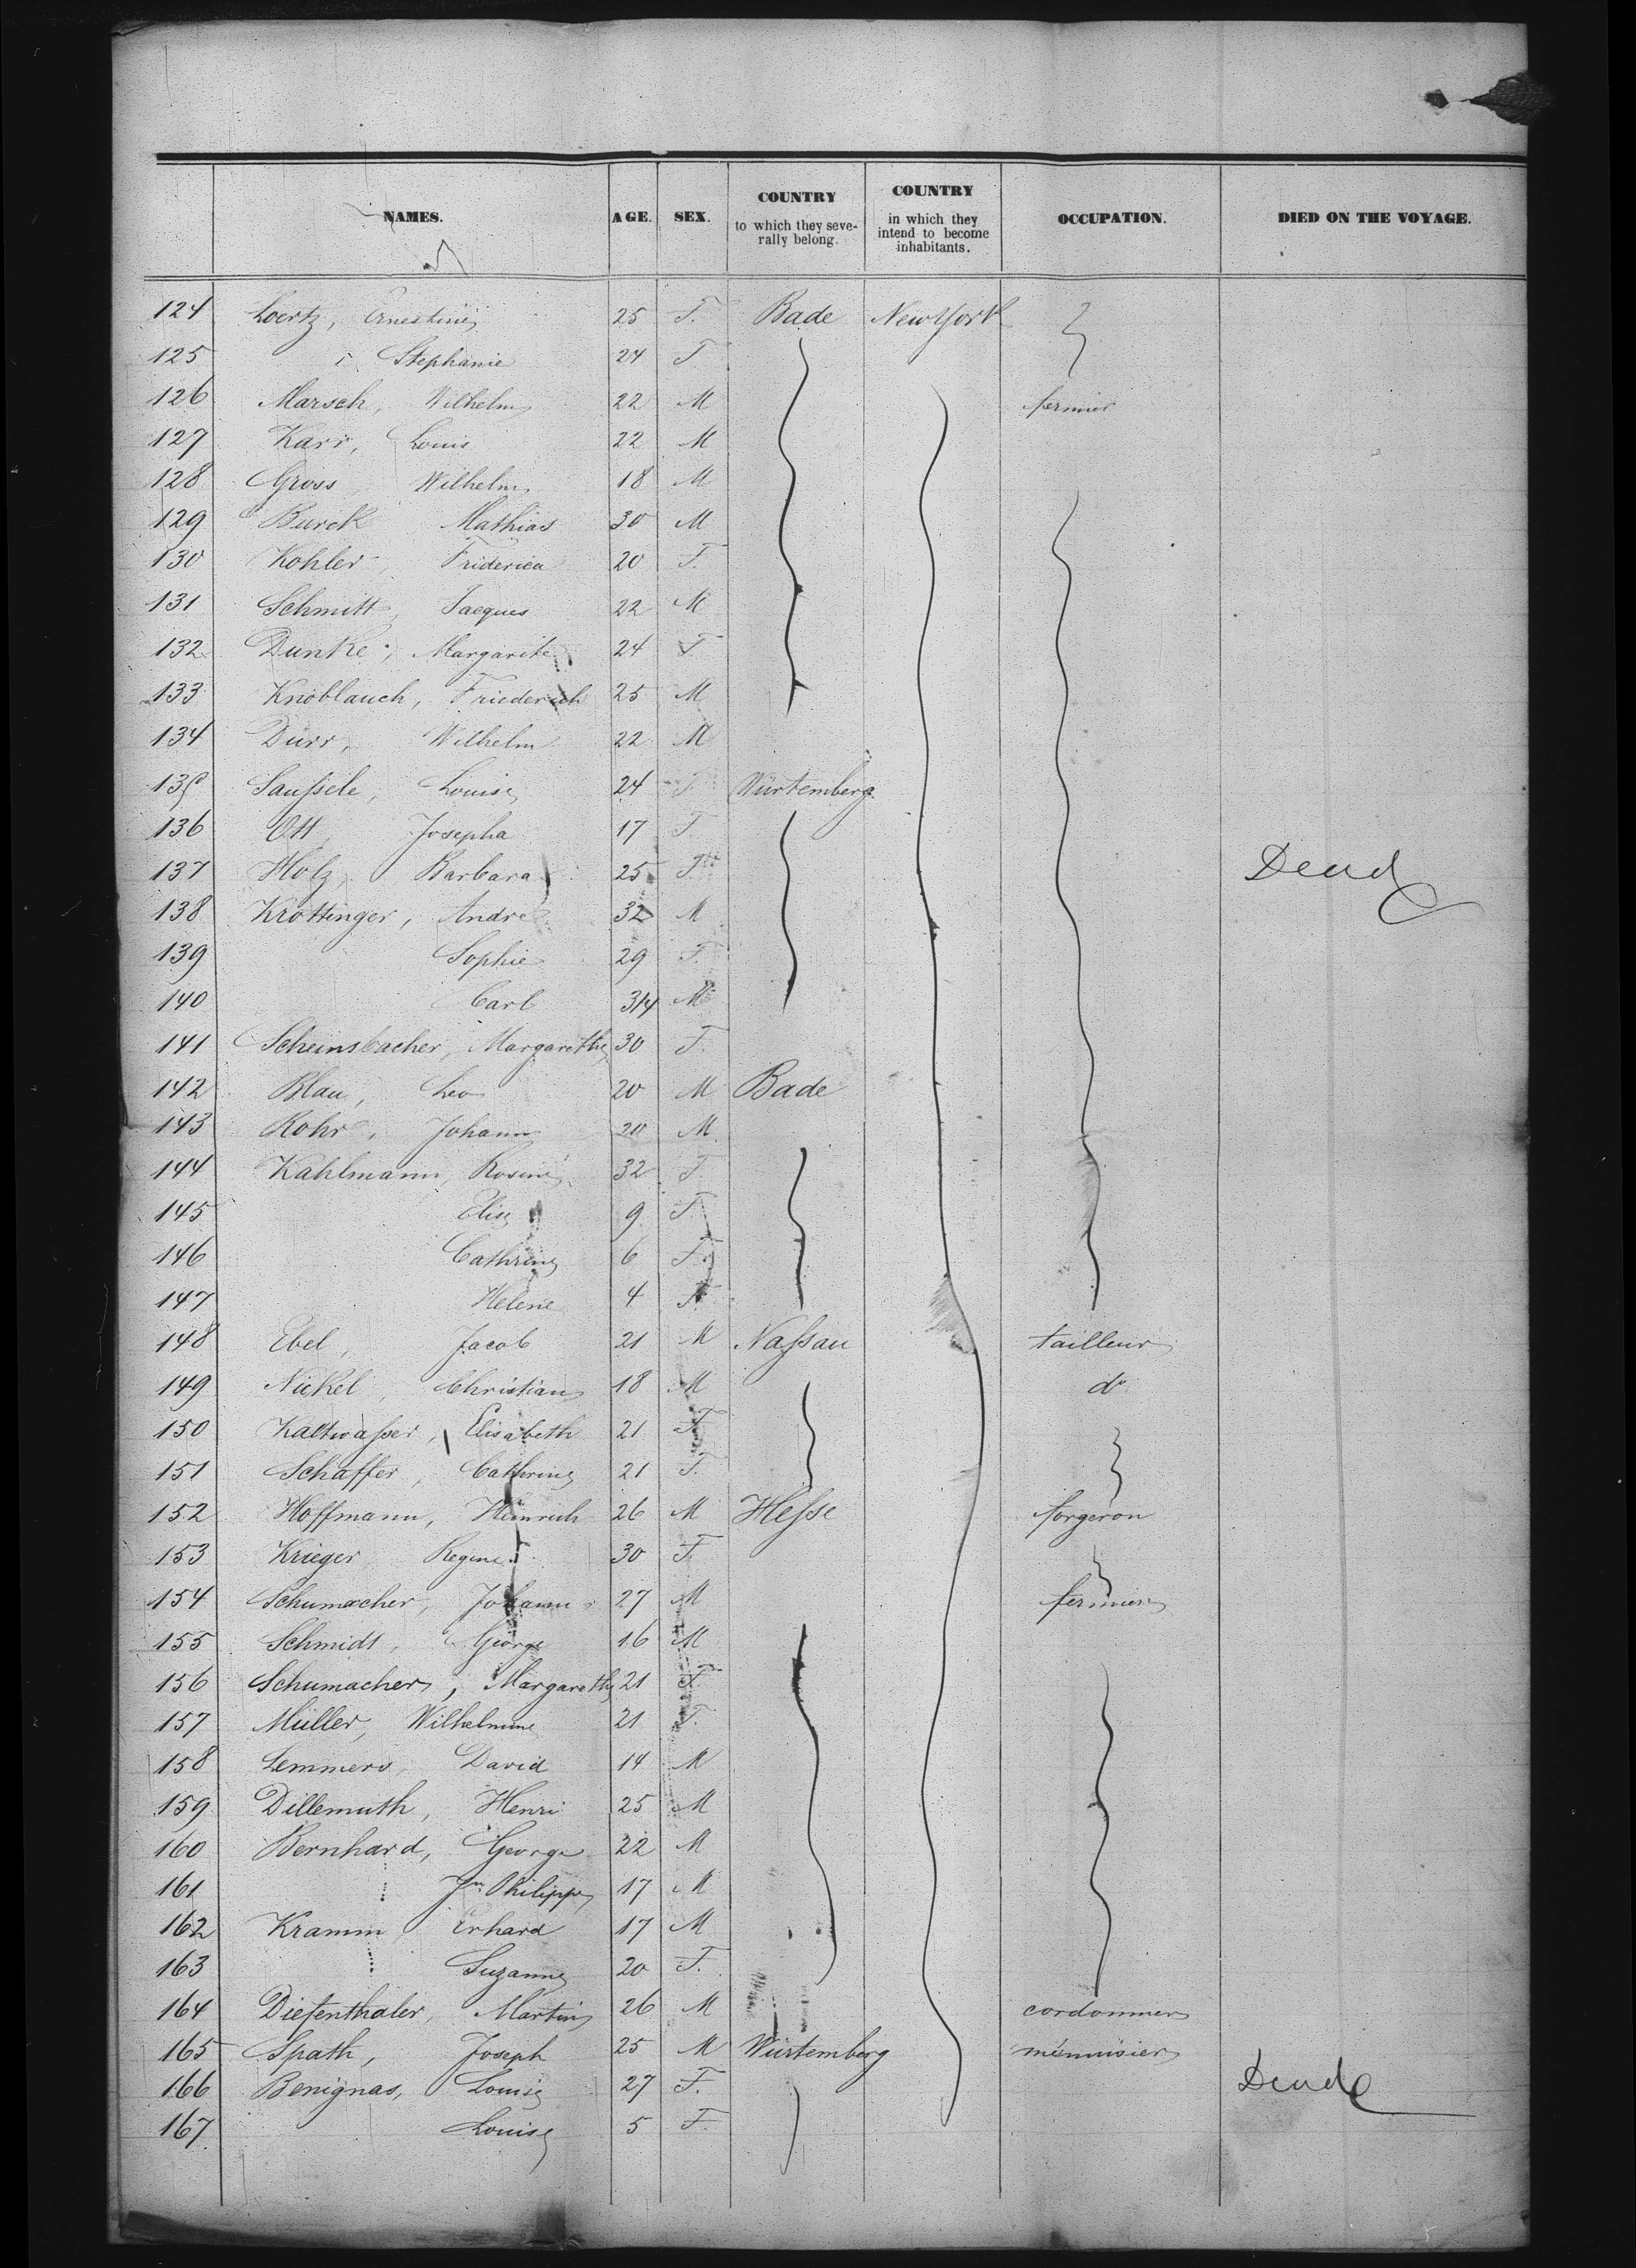 NAMES. AGE. SEX. COUNTRY to which they seve- rally belong. COUNTRY in which they intend to become inhabitants. OCCUPATION. DIED ON THE VOYAGE.
124 Loertz, Ernestine 25 F. Bade New York
125 " Stephanie 24 F
126 Marsch, Wilhelm 22 M fermier
127 Karr, Louis 22 M
128 Gross, Wilhelm 18 M
129 Burck Mathias 30 M
130 Kohler, Friderica 20 F.
131 Schmitt, Jacques 22 M
132 Dunke, Margarite 24 F
133 Knoblauch, Friederich 25 M
134 Durr, Wilhelm 22 M
135 Saußele, Louise 24 F Würtemberg
136 Ott, Josepha 17 F.
137 Holz, Barbara 25 F. Dead
138 Krottinger, Andre 32 M
139 Sophie 29 F.
140 Carl 3/4 M
141 Scheinsbacher, Margarethe 30 F.
142 Blau, Leo 20 M Bade
143 Rohr, Johann 20 M
144 Kahlmann, Rosine 32 F
145 Elise 9 F.
146 Cathrine 6 F.
147 Helene 4 F.
148 Ebel, Jacob 21 M Naßau tailleur
149 Nickel, Christian 18 M do
150 Kaltwaßer, Elisabeth 21 F.
151 Schaffer, Cathrine 21 F.
152 Hoffmann, Heinrich 26 M Heße forgeron
153 Krieger, Regine 30 F.
154 Schumacher, Johann 27 M fermier
155 Schmidt, George 16 M
156 Schumacher, Margarethe 21 F.
157 Müller, Wilhelmine 21 F.
158 Lemmers, David 14 M
159 Dillemuth, Henri 25 M
160 Bernhard, George 22 M
161 Jn Philippe 17 M
162 Kramm Erhard 17 M
163 Suzanne 20 F.
164 Diefenthaler, Martin 26 M cordonnier
165 Spath, Joseph 25 M Würtemberg menuisier
166 Benignas, Louise 27 F. Dead
167 Louise 5 F.